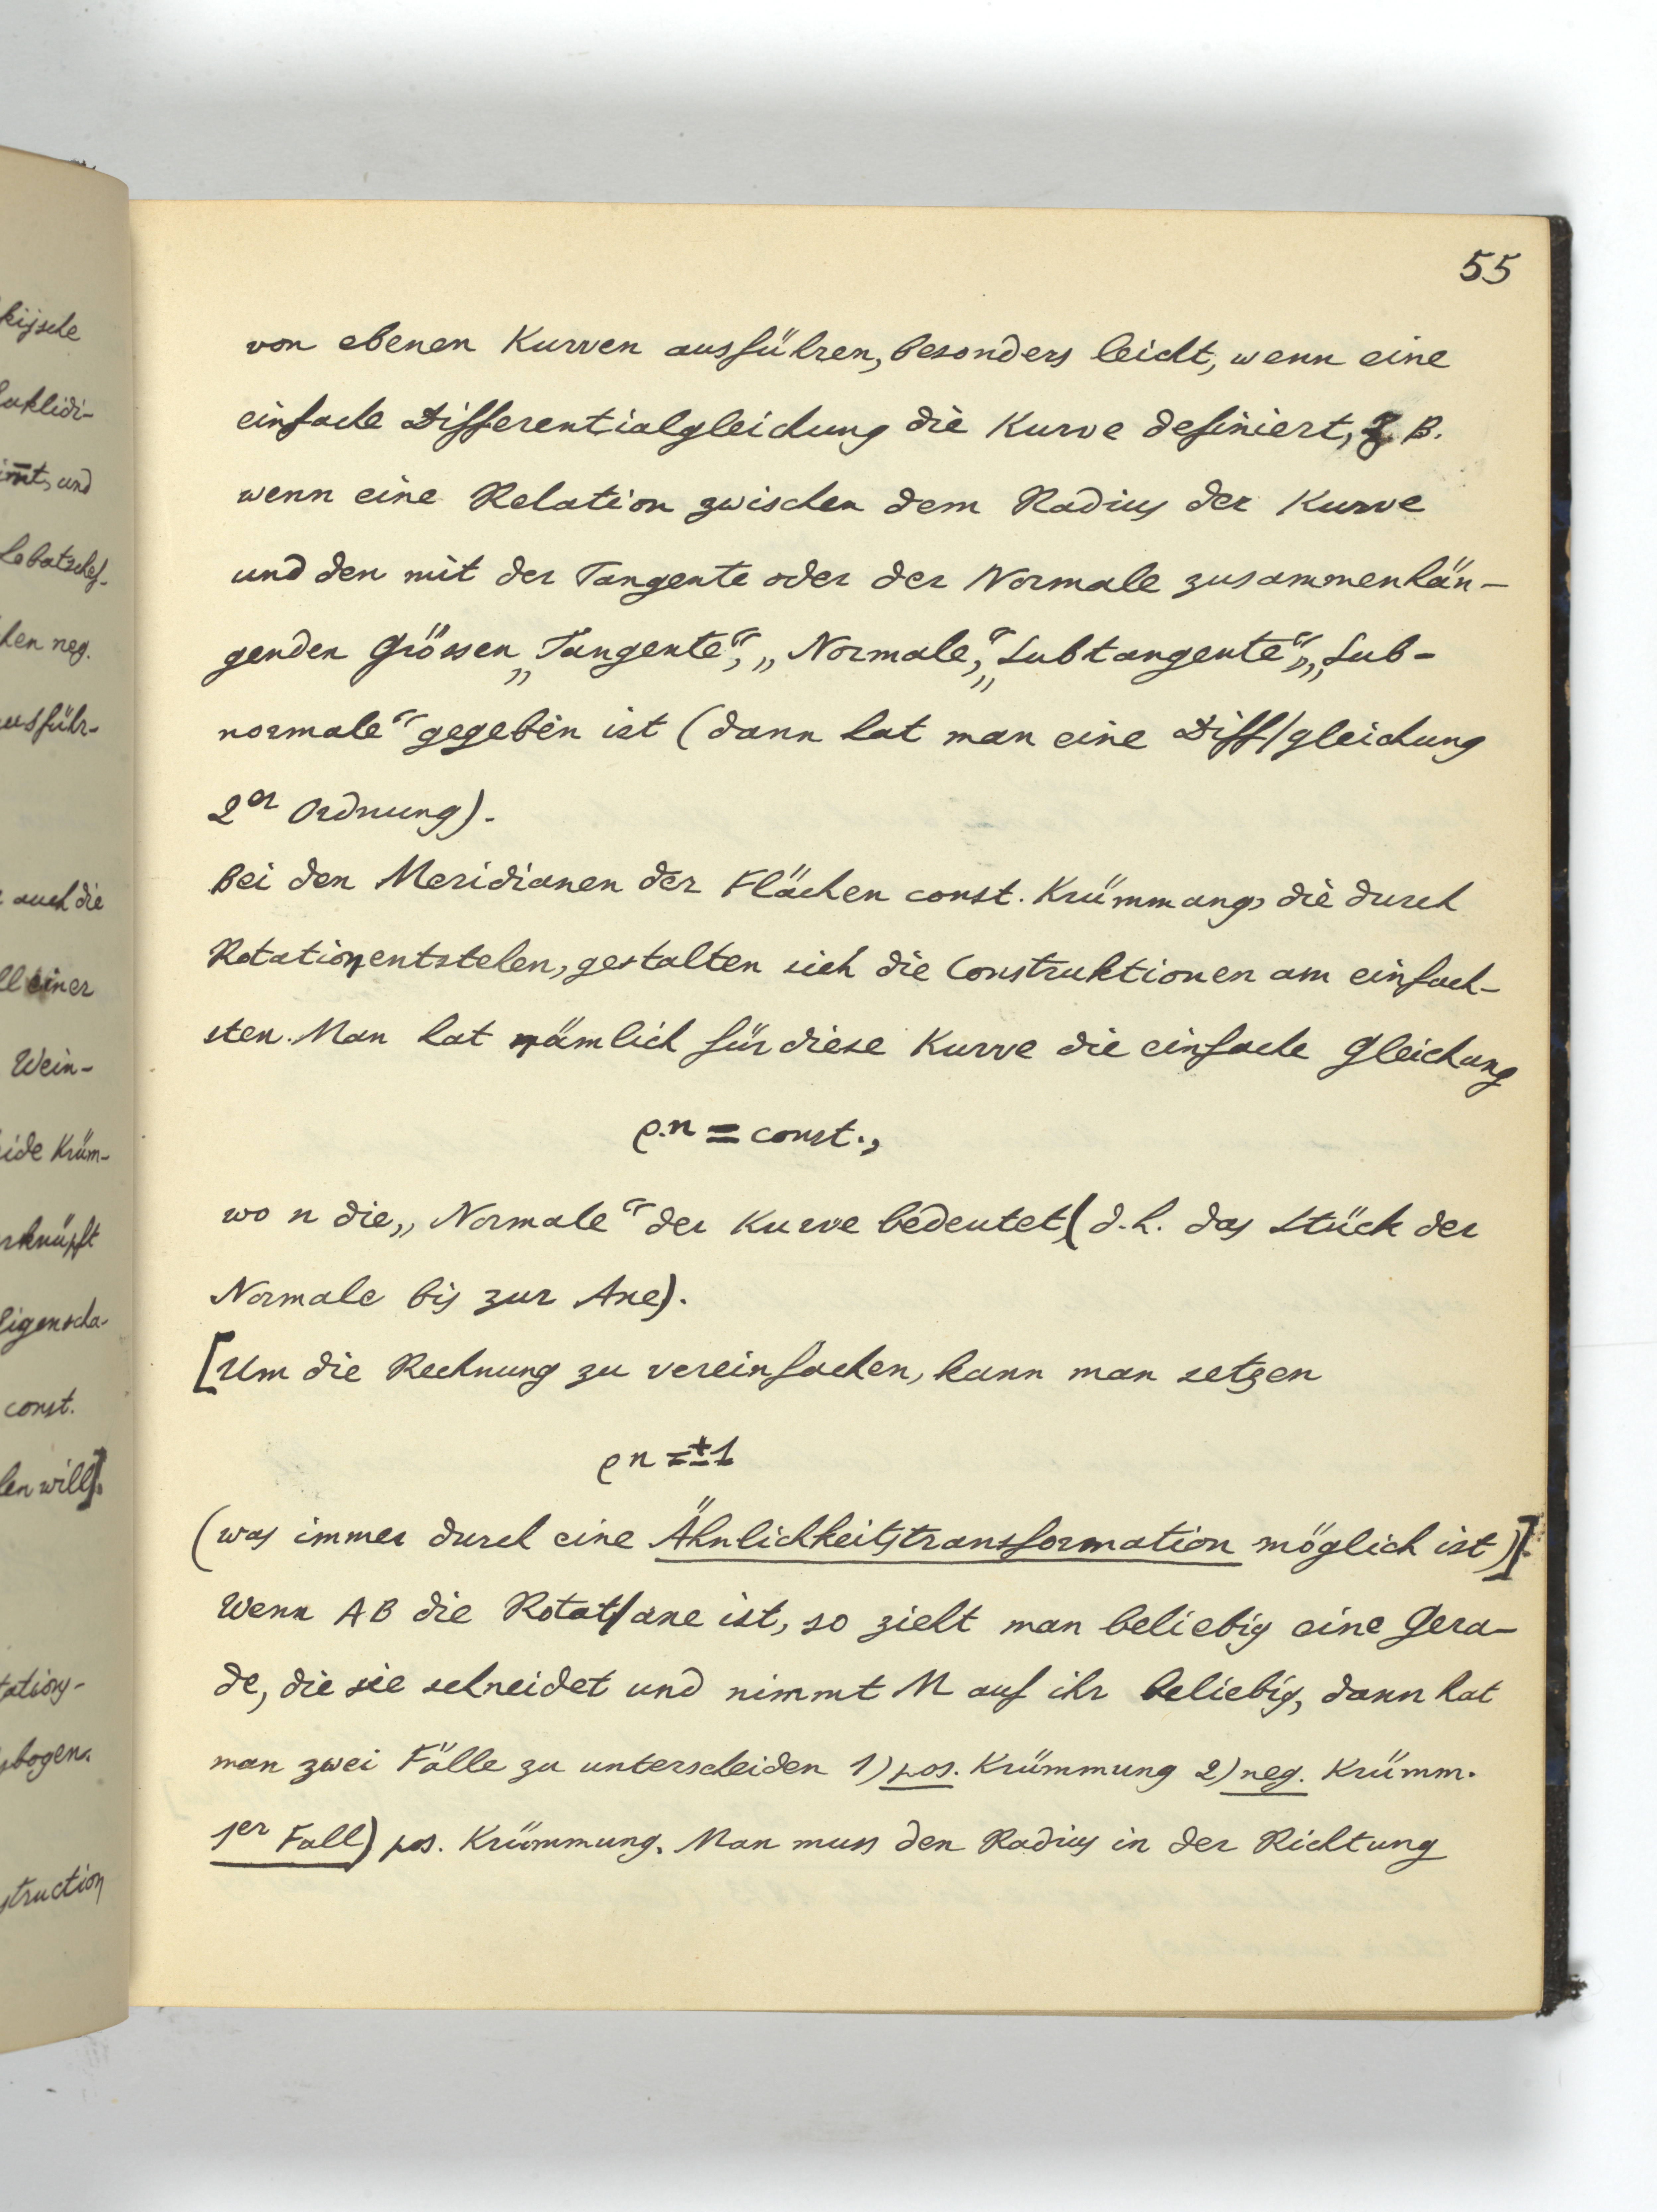 55
von ebenen Kurven ausführen, besonders leicht, wenn eine
einfache Differentialgleichung die Kurve definiert, z B.
wenn eine Relation zwischen dem Radius der Kurve
und den mit der Tangente oder der Normale zusammenhän-
genden Grössen „Tangente“, „Normale“, „Subtangente“, „Sub-
normale“ gegeben ist (dann hat man eine Diff/gleichung
2er Ordnung).
Bei den Meridianen der Flächen const. Krümmung, die durch
Rotation entstehen, gestalten sich die Construktionen am einfach-
sten. Man hat nämlich für diese Kurve die einfache Gleichung
ρ.n = const.,
wo n die „Normale“ der Kurve bedeutet (d.h. das Stück der
Normale bis zur Axe).
[Um die Rechnung zu vereinfachen, kann man setzen
ρ n = ± 1
(was immer durch eine Ähnlichkeitstransformation möglich ist)].
Wenn AB die Rotat/axe ist, so zieht man beliebig eine Gera-
de, die sie schneidet und nimmt M auf ihr beliebig, dann hat
man zwei Fälle zu unterscheiden 1) pos. Krümmung 2) neg. Krümm.
1er Fall) pos. Krümmung. Man muss den Radius in der Richtung
kijsche
uklidi-
und
Lobatschef-
hen neg.
ausführ-
auch die
ll einer
Wein-
ide Krüm-
rknüpft
Eigenscha-
const.
len will].
tations-
bogen.
struction